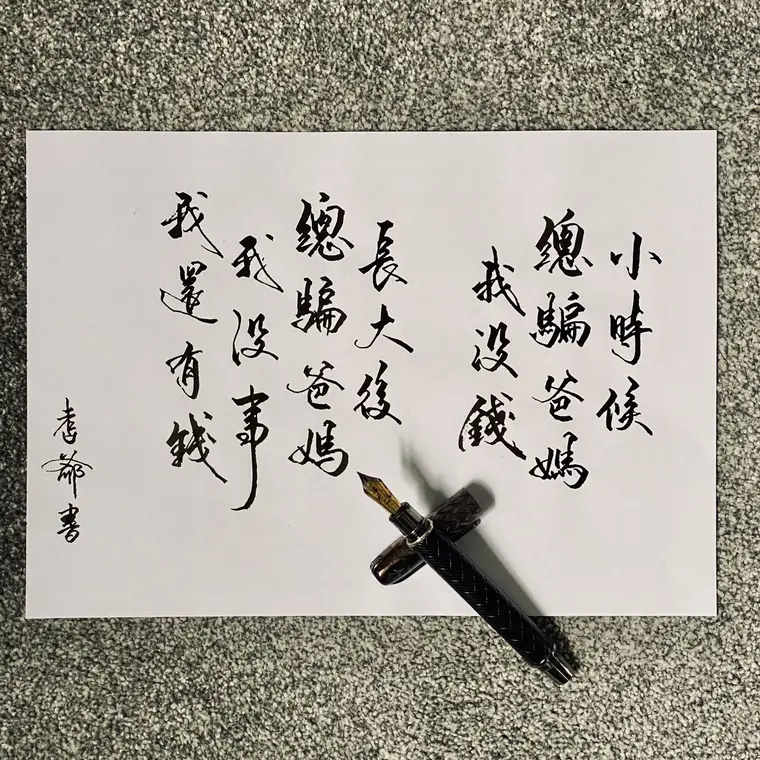 小時候
總騙爸媽
我没錢
長大後
總騙爸媽
我没事
我還有錢
書